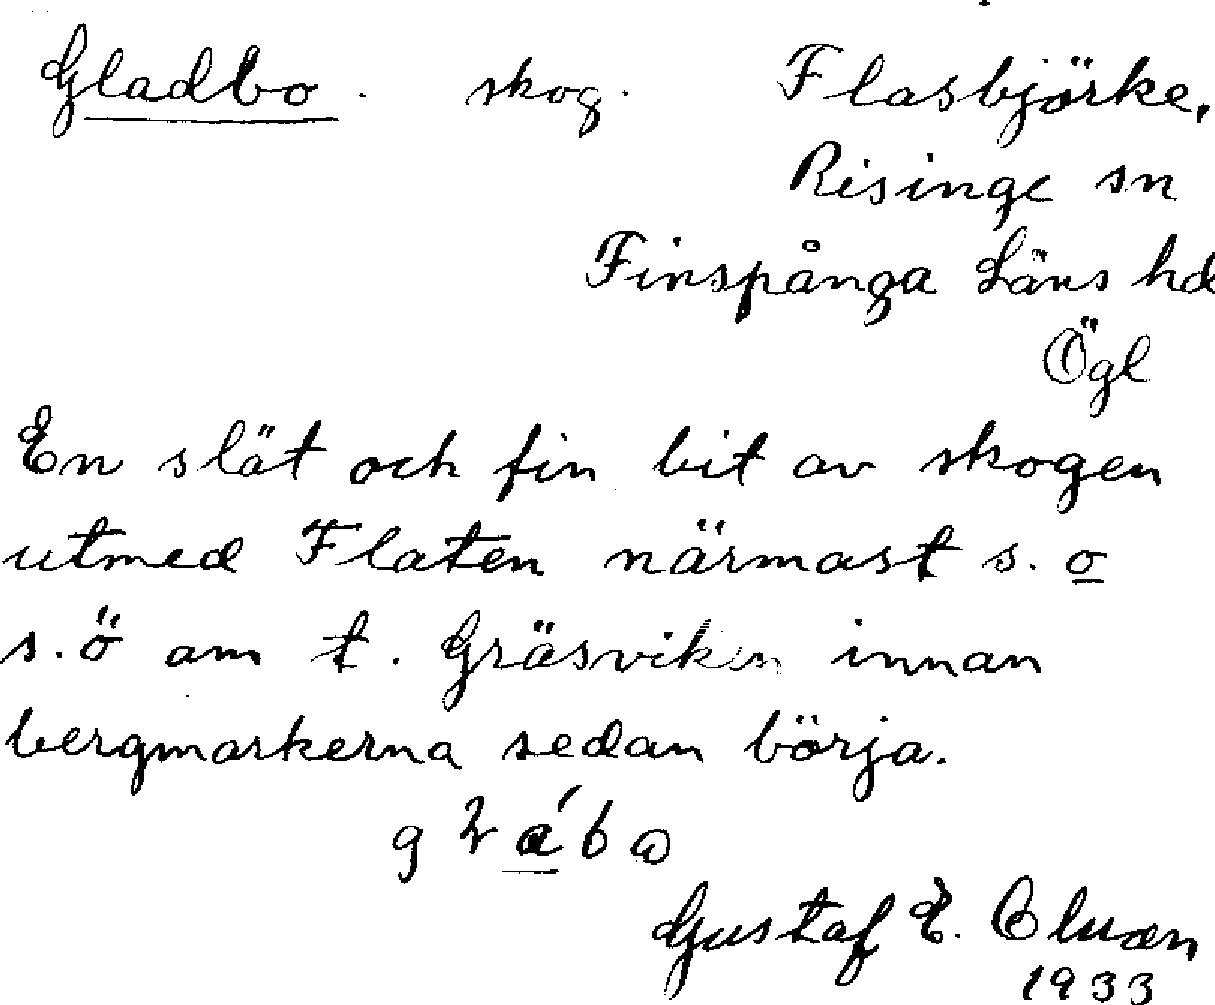 Gladbo. skog. Flasbjörke,
Risinge sn
Finspånga Läns hd
Ögl
En slät och fin bit av skogen
utmed Flaten närmast s. o
s.ö om t. Gräsviken innan
bergmarkerna sedan börja.
Gustaf E.
1933